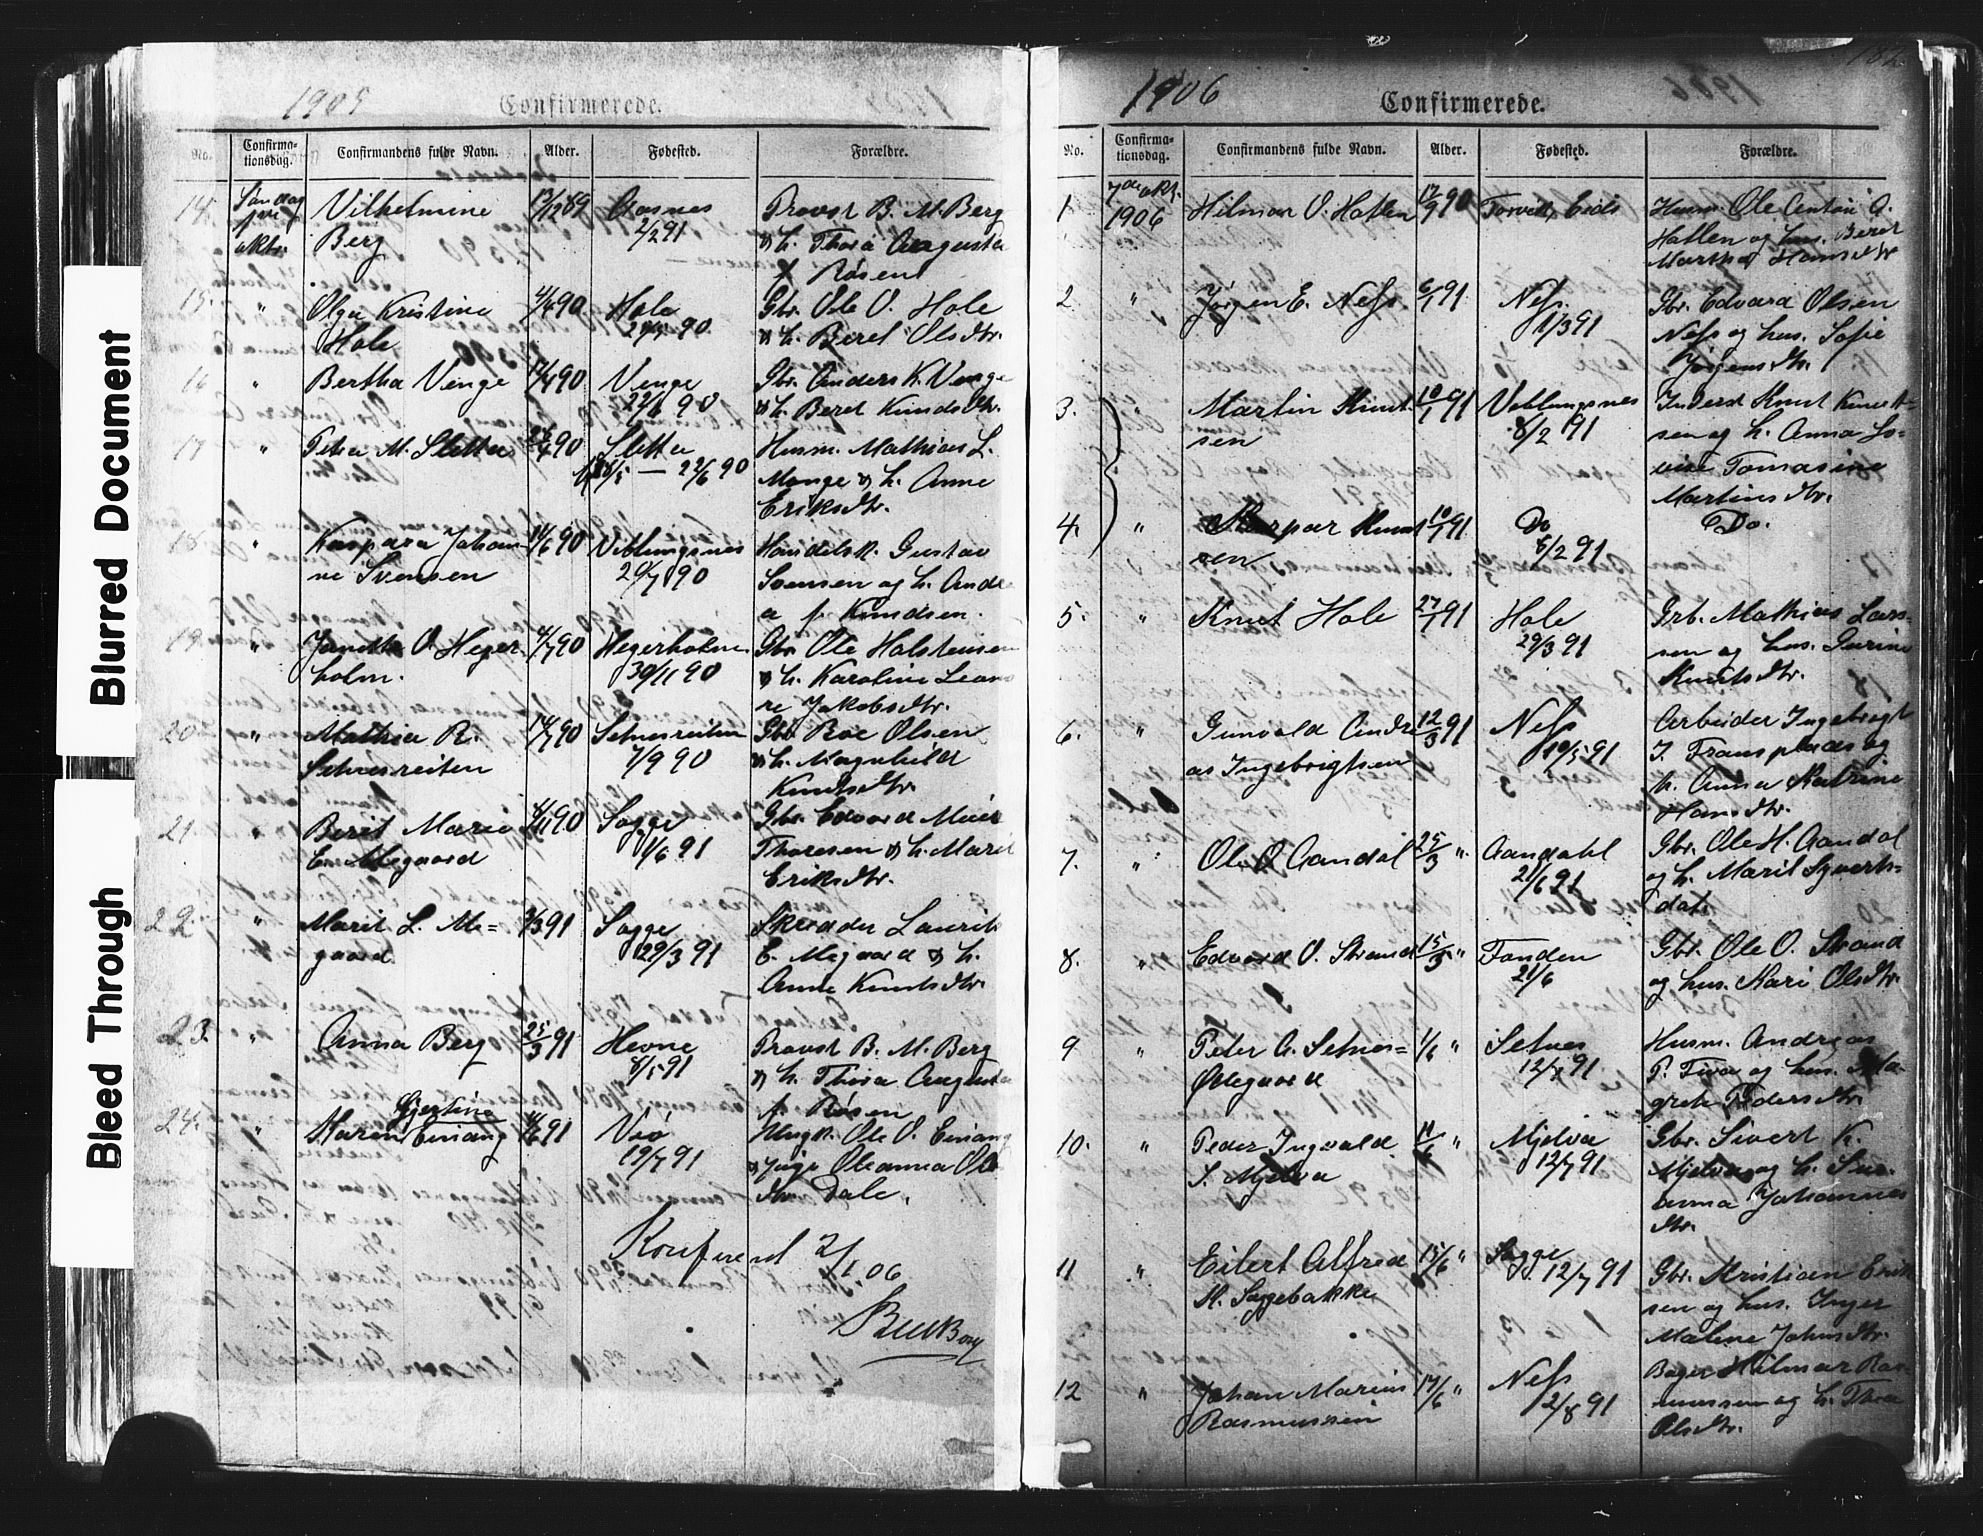 Blurred Document
Bleed Through
1905
Confirmerede.
No.
Confirma-
tionsdag.
Confirmandens fulde Navn.
Alder.
Fødested.
Forældre.
14.
Søndag
oktr.
Vilhelmine
Berg
13/12 89
Aasnes
2/2 91
Provst B. M. Berg
& h. Thora Augusta
f Rosen
15.
"
Olga Kristine
Hole
4/4 90
Hole
90
Gbr. Ole O. Hole
& h. Beret Olsdtr.
16
"
Bertha Venge
90
Venge
22/6 90
Gbr. Anders K. Venge
& h. Beret Knudsdtr.
17
"
Petra M. Sletta
90
Sletta
— 22/6 90
Husm. Mathias L.
Monge & h. Anne
Eriksdtr.
18.
"
Kaspara Johan
ne Svensen
14/6 90
Veblungsnes
20/7 90
Handelsk. Gustav
Svensen og h. Andr
ea f. Knudsen.
19.
"
Janetta O. Heger
holm.
4/7 90
Hegerholm
30/11 90
Gbr. Ole Holstensen
& h. Karoline Leono
re Jakobsdtr.
20.
"
Mathea R.
Setnesreiten
14/7 90
Setnesreiten
7/9 90
Gbr. Roe Olsen
& h. Magnhild
Knutsdtr.
21.
"
Berit Marie
E. Megaard
4/11 90
Sogge
1/6 91
Gbr. Edvard Meier
Thoresen & h. Marit
Eriksdtr.
22.
"
Marit L. Me=
gaard
3/3 91
Sogge
29/3 91
Skrædder Laurits
E. Megaard & h.
Anne Knutsdtr.
23.
"
Anna Berg
25/3 91
Hevne
8/5 91
Provst B. M. Berg
& h. Thora Augusta
f. Rosen
24.
"
Gjertine
Karen Einang
4/6 91
Viö
19/7 91
Ungk. Ole O. Einang
& pige Oleanna Ols
dtr. Dale.
Konfererd 2/1 06
182
1906
Confirmerede.
No.
Confirma-
tionsdag.
Confirmandens fulde Navn.
Alder.
Fødested.
Forældre.
1
7de okt.
1906
Hilmar O. Hatlen
12/9 90
Torvik, Eids
Husm. Ole Anton A.
Hatlen og hus. Beret
Martha Hansdtr
2
"
Jørgen E. Ness
6/1 91
Ness.
1/3 91
Gbr. Edvard Olsen
Ness og hus. Sofie
Jørgensdtr.
3.
"
Martin Knut
sen
10/1 91
Veblungsnes
8/2 91
Inderst Knut Knut=
sen og h. Anna Lo=
vise Tomasine
Martinsdtr.
4.
"
Kaspar Knut
sen
10/1 91
Do
8/2 91
Do.
5.
"
Knut Hole
27/1 91
Hole
29/3 91
Grb. Mathias Lars=
sen og hus. Gurine
Knutsdtr.
6.
"
Gunvald Andre
as Ingebrigtsen
12/3 91
Ness
10/5 91
Arbeider Ingebrigt
J. Fransplads og
h. Anna Katrine
Hansdtr.
7.
"
Ole O Aandal
25/3 "
Aandahl
21/6 91
Gbr. Ole H. Aandal
og h. Marit Syverts=
datr
8.
"
Edvard O. Strand
15/3 "
Tonden
21/6
Gbr. Ole O. Strand
og hus. Kari Olsdtr.
9
"
Peter A. Setnes=
Ødegaard
1/6 "
Setnes
12/7 91
Husm. Andreas
P. Tiva og hus. Ma-
grete Pedersdtr.
10.
"
Peder Ingvald
S. Mjelva
11/6 "
Mjelva
12/7 91
Gbr. Sivert K.
Mjelva og h. Sus-
anna Johannes
dtr.
11
"
Eilert Alfred
K. Soggebakke
15/6 "
Sogge
12/7 91
Gbr. Kristian Erik
sen og hus. Inger
Malene Johnsdtr.
12
"
Johan Marius
Rasmussen
17/6 "
Ness
2/8 91
Bager Hilmar Ras-
mussen og h. Thea
Olsdtr.